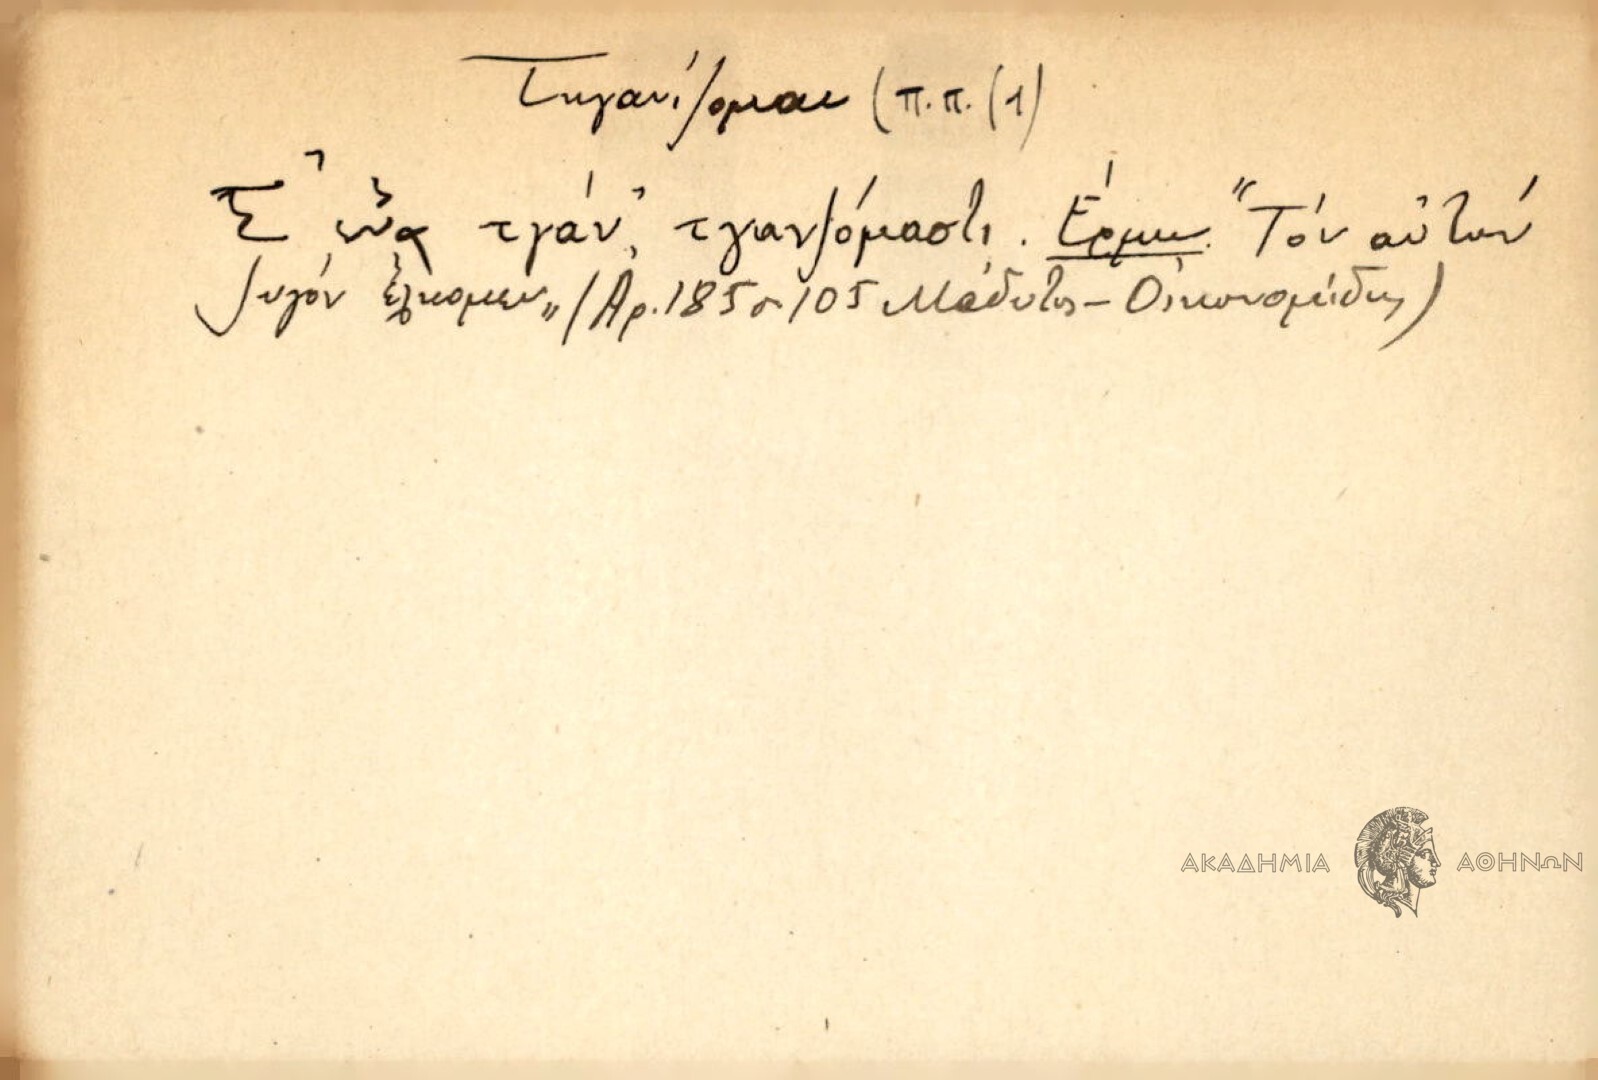 Τηγανίζομαι (π.π. (1)
Σ' ἕνα τγάν' τγανζόμαστι. Ἑρμ. "Τόν αὐτόν
ζυγόν ἕλκομεν" (Ἀρ. 185 σ 105 Μάδυτος - Οἰκονομίδης)
ΑΚΑΔΗΜΙΑ ΑΘΗΝΩΝ